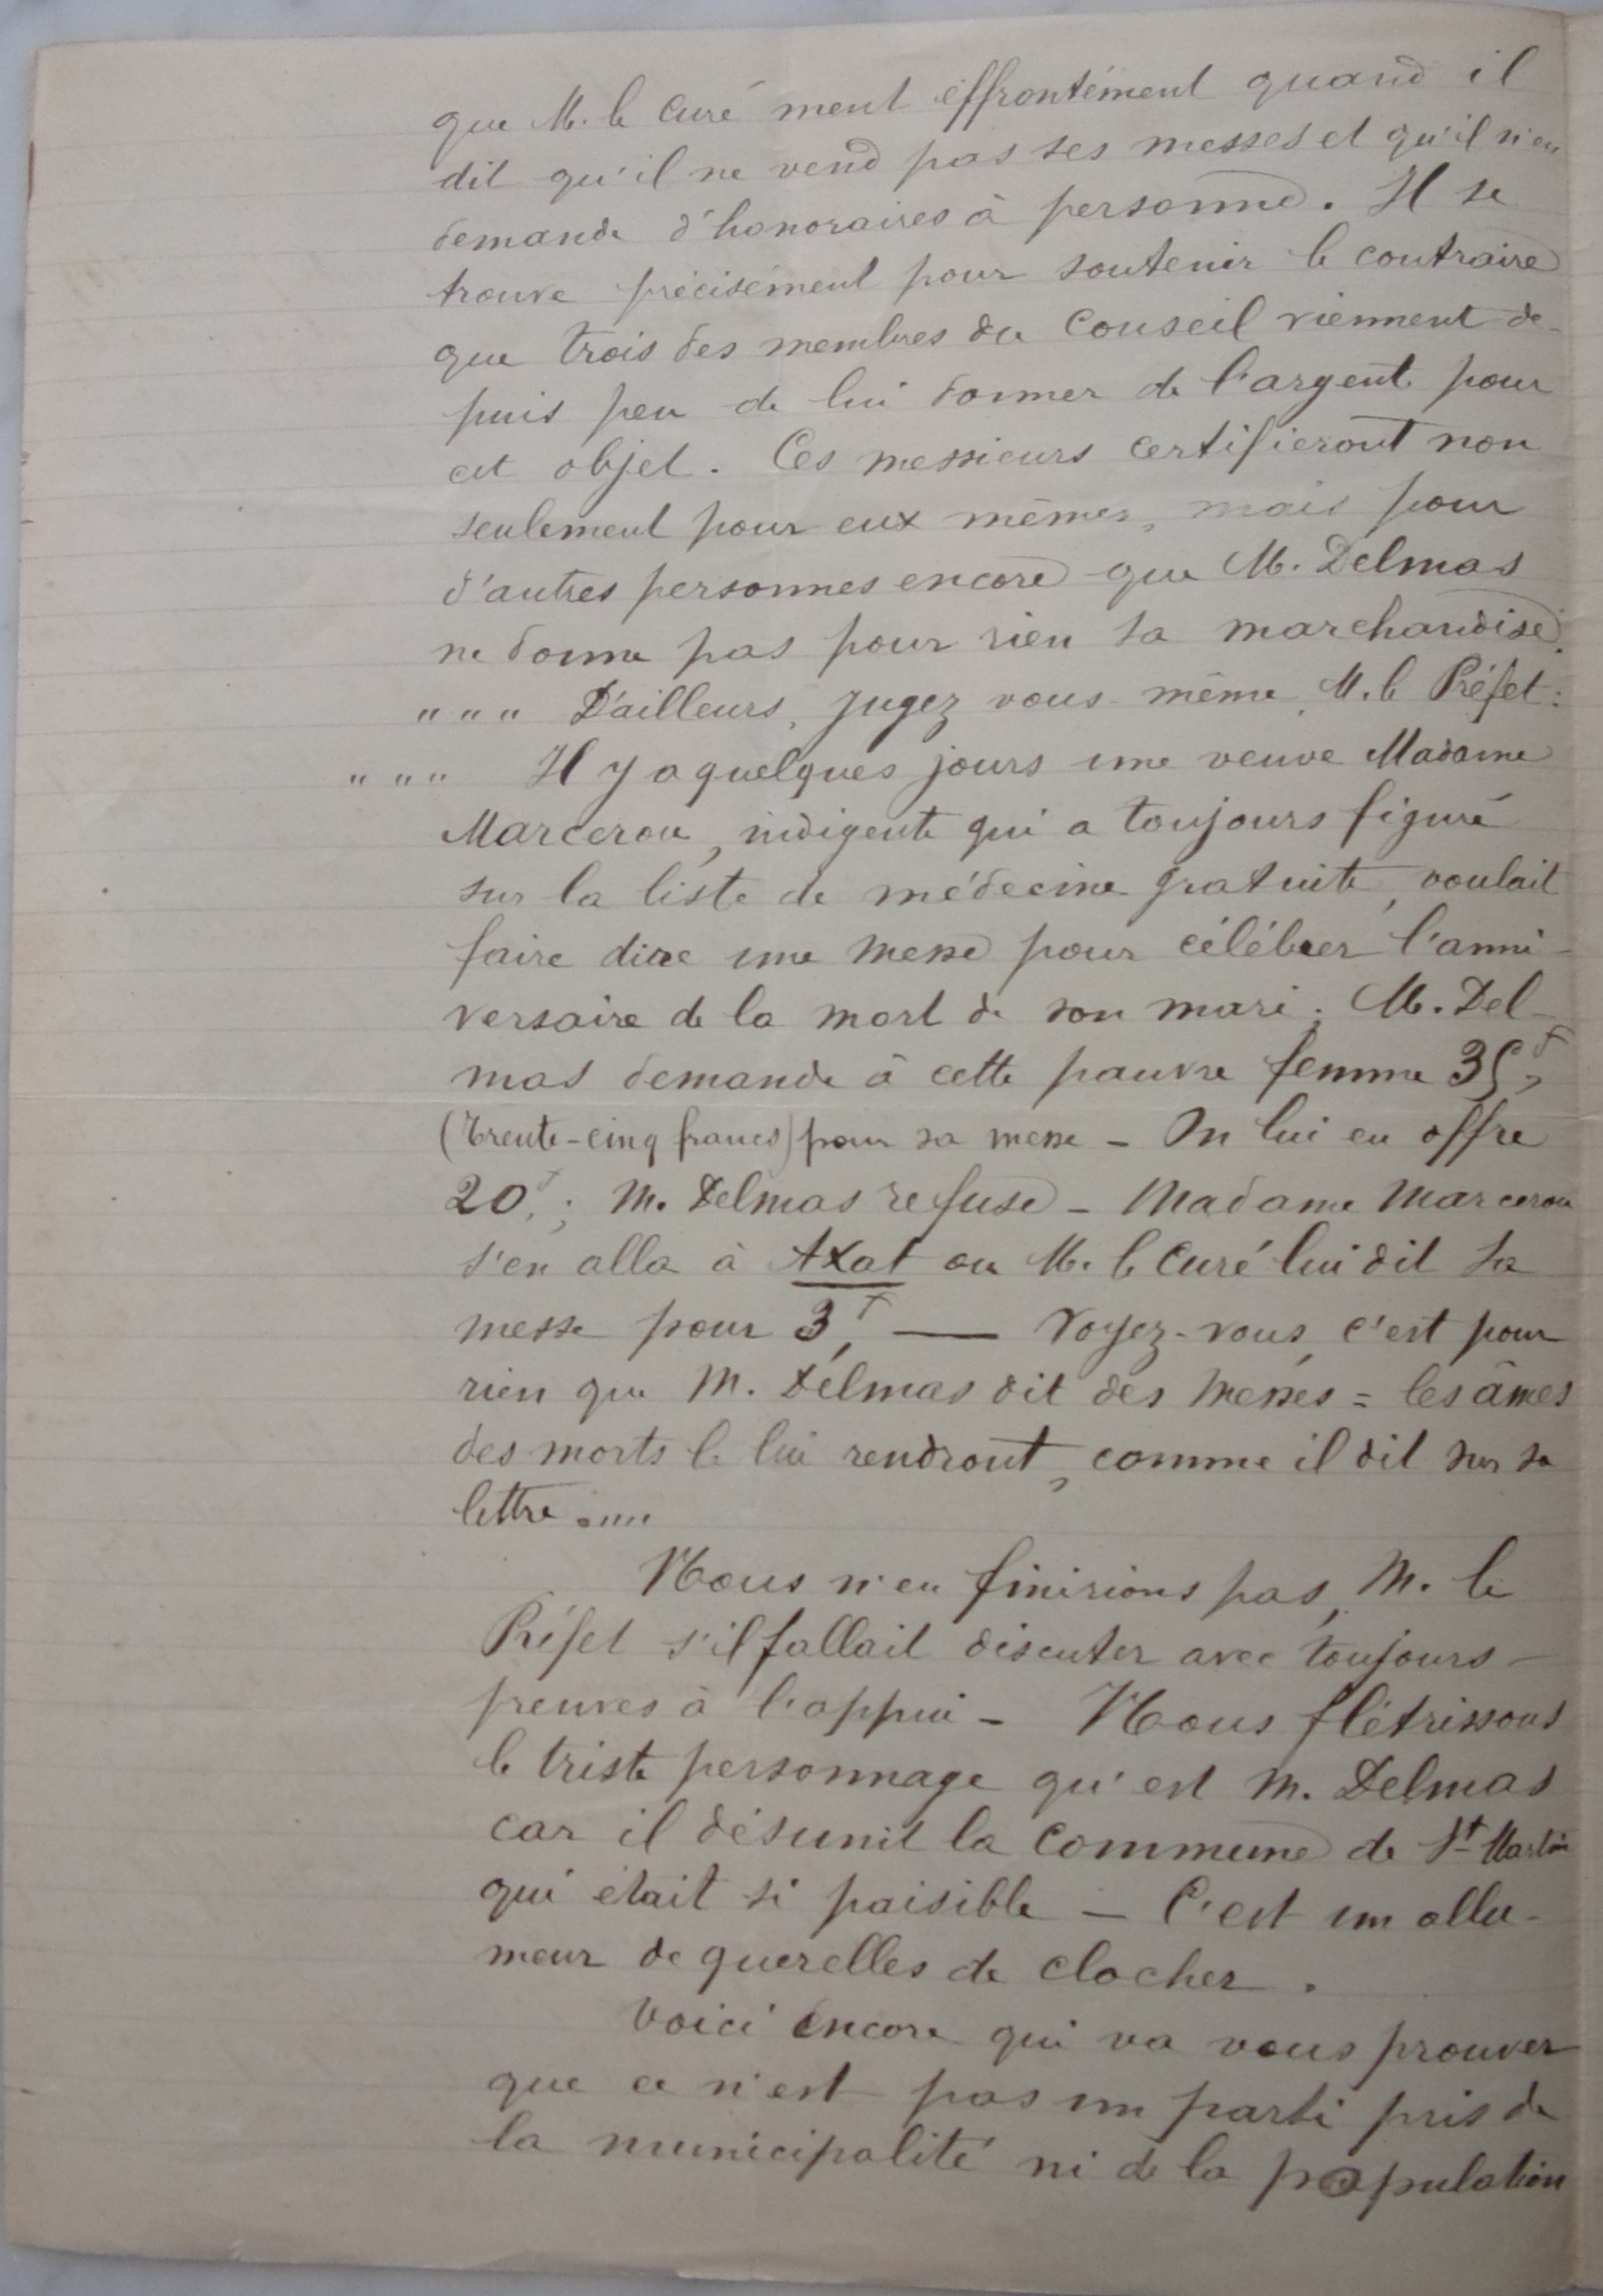 que M. le Curé ment effrontément quand il
dit qu'il ne vend pas ses messes et qu'il n'en
demande d'honoraires à personne. Il se
trouve précisément pour soutenir le contraire
que trois des membres du Conseil viennent de-
puis peu de lui donner de l'argent pour
cet objet. Ces messieurs certifieront non
seulement pour eux mêmes, mais pour
d'autres personnes encore que M. Delmas
ne donne pas pour rien sa marchandise.
" " " D'ailleurs, jugez vous-même, M. le Préfet:
" " " Il y a quelques jours une veuve Madame
Marcerou, indigente qui a toujours figuré
sur la liste de médecine gratuite, voulait
faire dire une messe pour célébrer l'anni-
versaire de la mort de son mari; M. Del-
mas demande à cette pauvre femme 35f,
(trente-cinq francs) pour sa messe - On lui en offre
20f,; M. Delmas refuse - Madame Marcerou
s'en alla à Axat ou M. le Curé lui dit sa
messe pour 3f, — Voyez-vous, c'est pour
rien que M. Delmas dit des messes = les âmes
des morts le lui rendront, comme il dit sur sa
lettre ....
Nous n'en finirions pas, M. le
Préfet s'il fallait discuter avec toujours -
preuves à l'appui - Nous flétrissons
le triste personnage qu'est M. Delmas
car il désunit la commune de St Martin
qui était si paisible - C'est un allu-
meur de querelles de clocher.
Voici encore qui va vous prouver
que ce n'est pas un parti pris de
la municipalité ni de la population